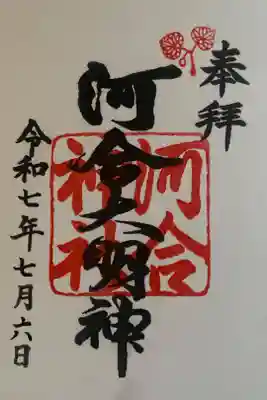 奉拝
河合大明神
河合
神社
令和七年七月六日